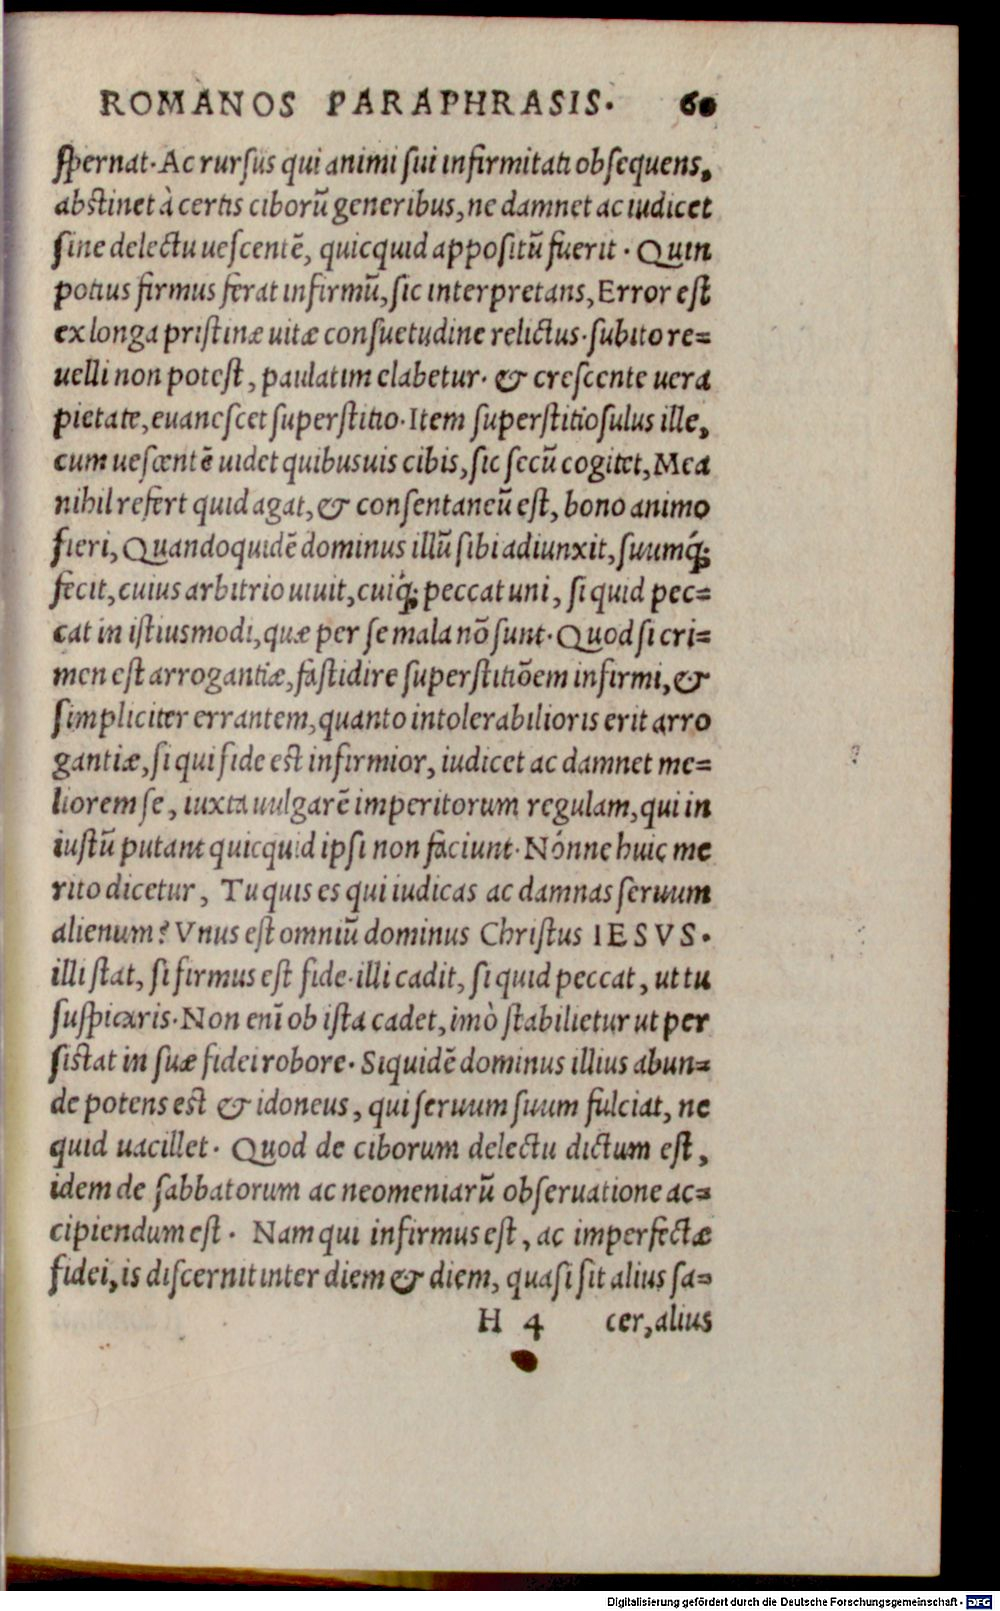 ROMANOS PARAPHRASIS. 60
spernat. Ac rursus qui animi sui infirmitati obsequens,
abstinet à certis ciborũ generibus, ne damnet ac iudicet
sine delectu uescentẽ, quicquid appositũ fuerit. Quin
potius firmus ferat infirmũ, sic interpretans, Error est
ex longa pristinæ uitæ consuetudine relictus. subito re=
uelli non potest, paulatim elabetur. & crescente uera
pietate, euanescet superstitio. Item superstitiosulus ille,
cum uescentẽ uidet quibusuis cibis, sic secũ cogitet, Mea
nihil refert quid agat, & consentaneũ est, bono animo
fieri, Quandoquidẽ dominus illũ sibi adiunxit, suumq́;
fecit, cuius arbitrio uiuit, cuiq́; peccat uni, si quid pec=
cat in istiusmodi, quæ per se mala nõ sunt. Quod si cri=
men est arrogantiæ, fastidire superstitiõem infirmi, &
simpliciter errantem, quanto intolerabilioris erit arro
gantiæ, si qui fide est infirmior, iudicet ac damnet me=
liorem se, iuxta uulgarẽ imperitorum regulam, qui in
iustũ putant quicquid ipsi non faciunt. Nónne huic me
rito dicetur, Tu quis es qui iudicas ac damnas seruum
alienum? Vnus est omniũ dominus Christus IESVS.
illi stat, si firmus est fide. illi cadit, si quid peccat, ut tu
suspicaris. Non enĩ ob ista cadet, imò stabilietur ut per
sistat in suæ fidei robore. Siquidẽ dominus illius abun=
de potens est & idoneus, qui seruum suum fulciat, ne
quid uacillet. Quod de ciborum delectu dictum est,
idem de sabbatorum ac neomeniarũ obseruatione ac=
cipiendum est. Nam qui infirmus est, ac imperfectæ
fidei, is discernit inter diem & diem, quasi sit alius sa=
H 4 cer, alius
Digitalisierung gefördert durch die Deutsche Forschungsgemeinschaft - DFG